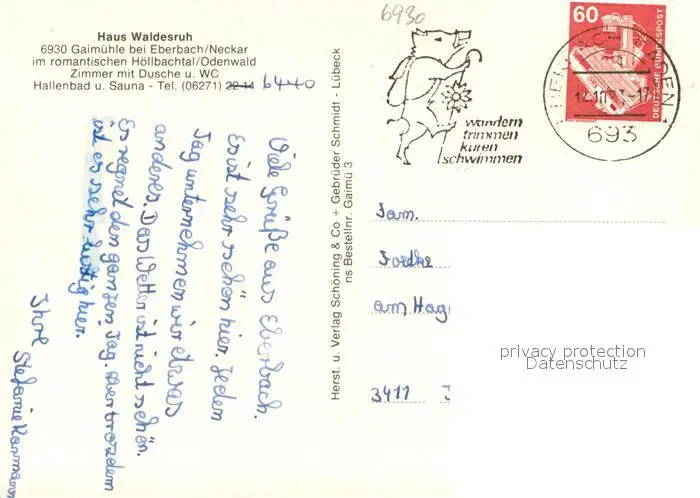 Haus Waldesruh
6930 Gaimühle bei Eberbach/Neckar
im romantischen Höllbachtal/Odenwald
Zimmer mit Dusche u. WC
Hallenbad u. Sauna - Tel. (06271) 22 14 6440
6930
wandern
trimmen
kuren
schwimmen
60
DEUTSCHE BUNDESPOST
693
Viele Grüße aus Eberbach.
Es ist sehr schön hier. Jeden
Tag unternehmen wir etwas
anderes. Das Wetter ist nicht schön.
Es regnet den ganzen Tag. Aber trotzdem
ist es sehr lustig hier.
Ihre
Stefanie
Herst. u. Verlag Schöning & Co + Gebrüder Schmidt - Lübeck
ns Bestellnr. Gaimü 3
Fam.
am Hag
3411
privacy protection
Datenschutz